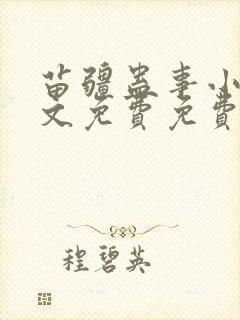 苗疆蛊事小
文免费免费
程碧英